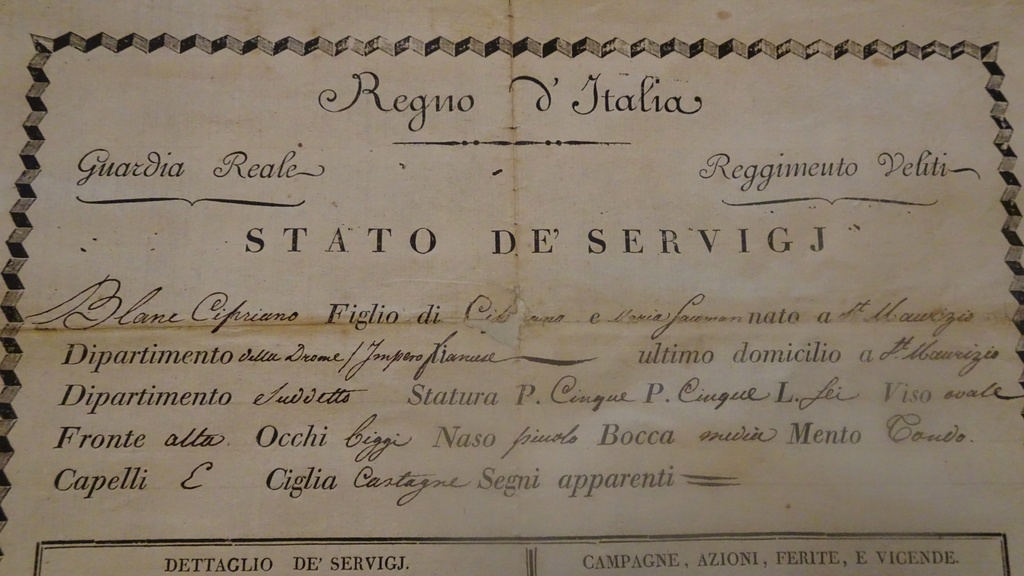 Regno d'Italia
Guardia Reale Reggimento Veliti
STATO DE' SERVIGJ
Blanc Cipriano Figlio di e Maria nato a St. Maurizio
Dipartimento della Drome / Impero ultimo domicilio a St. Maurizio
Dipartimento Suddetto Statura P. Cinque P. Cinque L. Sei Viso ovale
Fronte alta Occhi biggi Naso piccolo Bocca media Mento Tondo.
Capelli E Ciglia Castagne Segni apparenti
DETTAGLIO DE' SERVIGJ. CAMPAGNE, AZIONI, FERITE, E VICENDE.